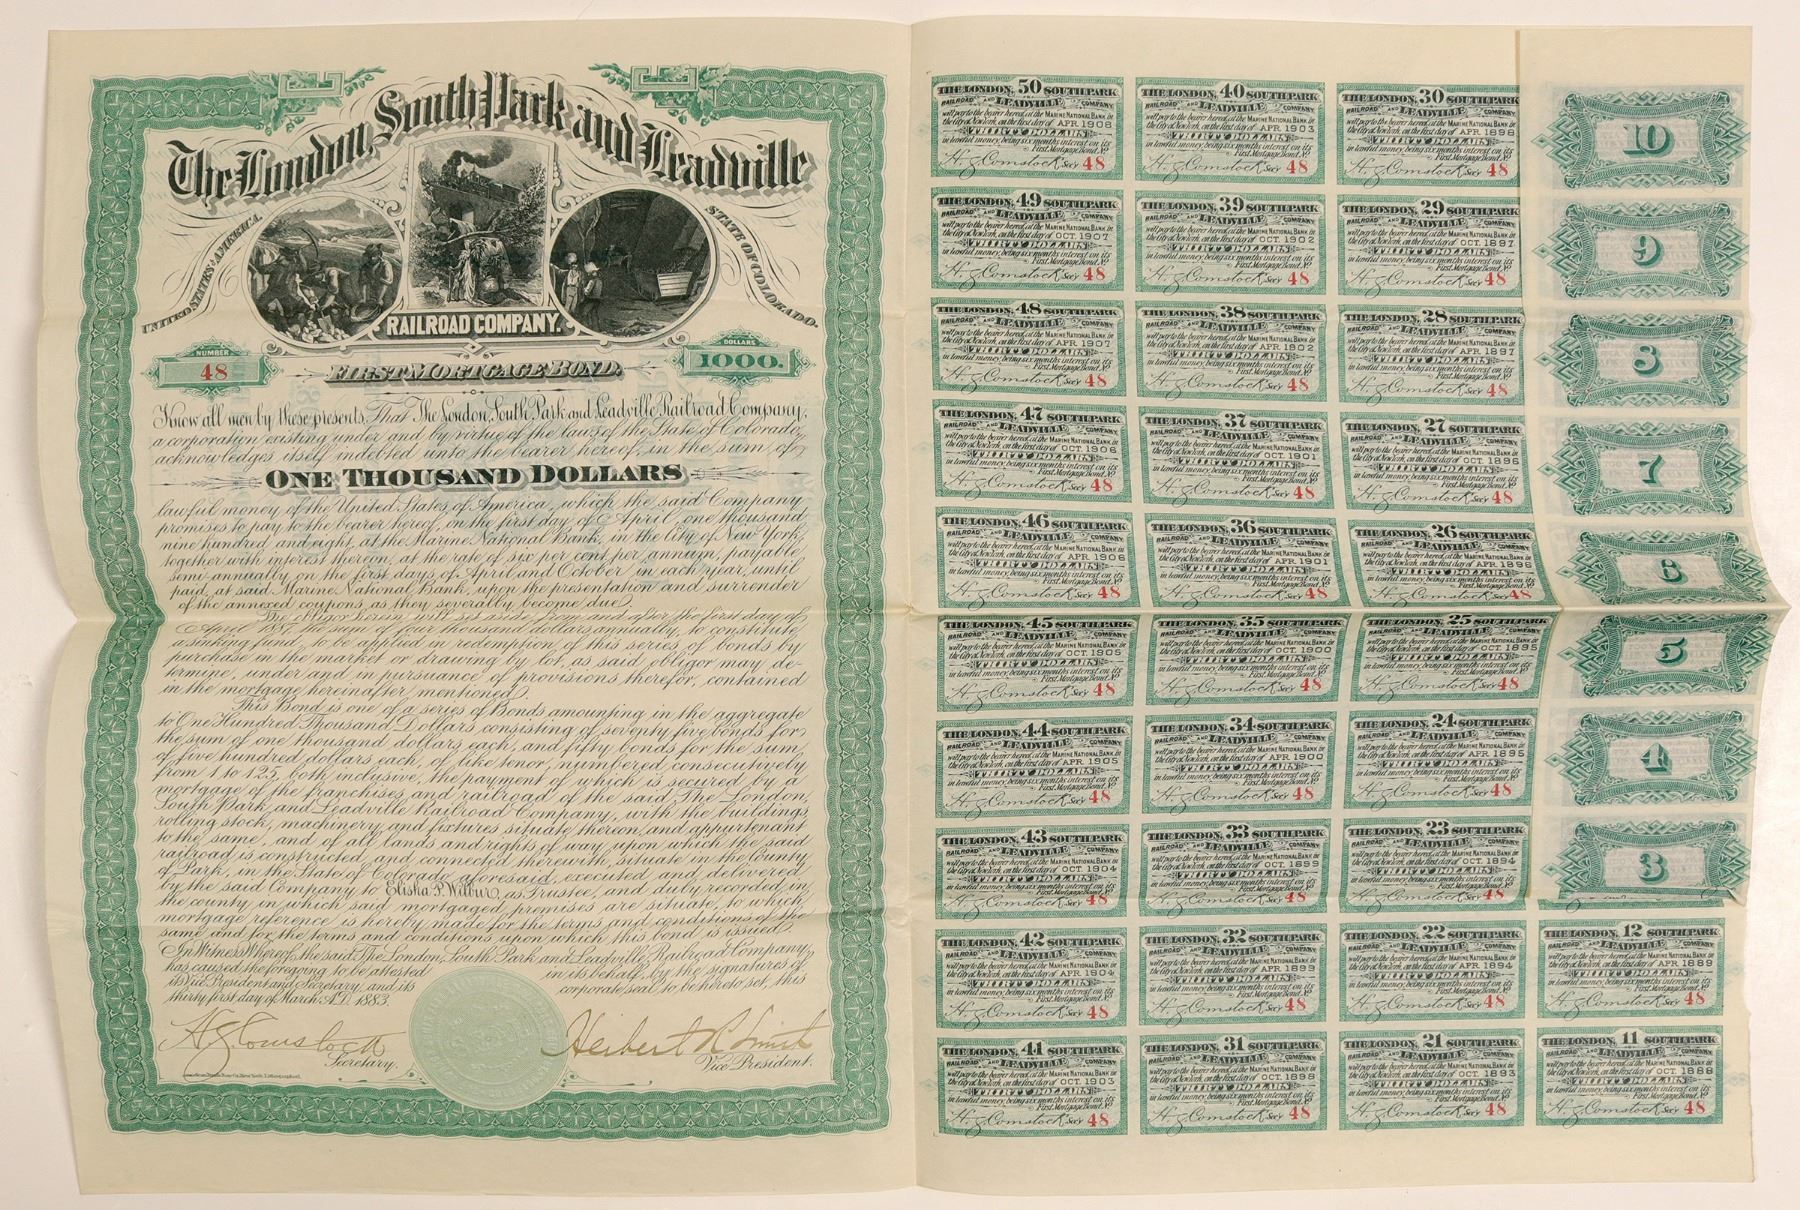 The London, South Park and Leadville
UNITED STATES of AMERICA.
STATE OF COLORADO.
RAILROAD COMPANY.
NUMBER
48
FIRST MORTGAGE BOND.
DOLLARS
1000.
Know all men by these presents, That The London, South Park and Leadville Railroad Company,
a corporation existing under and by virtue of the laws of the State of Colorado,
acknowledges itself indebted unto the bearer hereof, in the sum of
ONE THOUSAND DOLLARS
lawful money of the United States of America, which the said Company
promises to pay to the bearer hereof, on the first day of April, one thousand
nine hundred and eight, at the Marine National Bank, in the City of New York,
together with interest thereon, at the rate of six per cent per annum, payable
semi-annually, on the first days of April and October in each year, until
paid, at said Marine National Bank, upon the presentation and surrender
of the annexed coupons, as they severally become due.
The obligor herein will set aside from and after the first day of
April four thousand dollars annually, to constitute
a sinking fund, to be applied in redemption of this series of bonds by
purchase in the market or drawing by lot, as said obligor may de-
termine, under and in pursuance of provisions therefor, contained
in the mortgage hereinafter mentioned.
This Bond is one of a series of Bonds amounting in the aggregate
to One Hundred Thousand Dollars consisting of seventy five bonds for
the sum of one thousand dollars each, and fifty bonds for the sum
of five hundred dollars each, of like tenor, numbered consecutively
from 1 to 125, both inclusive, the payment of which is secured by a
mortgage of the franchises and railroad of the said, The London,
South Park and Leadville Railroad Company, with the buildings,
rolling stock, machinery and fixtures situate thereon, and appurtenant
to the same, and of all lands and rights of way upon which the said
railroad is constructed, and connected therewith, situate in the County
of Park, in the State of Colorado aforesaid, executed and delivered
by the said Company to Elisha P. Wilbur, as Trustee, and duly recorded in
the county in which said mortgaged premises are situate, to which
mortgage reference is hereby made for the terms and conditions of the
same and for the terms and conditions upon which this bond is issued.
In Witness Whereof, the said, The London, South Park and Leadville Railroad Company,
has caused the foregoing to be attested in its behalf, by the signatures of
its Vice President and Secretary, and its corporate seal to be hereto set, this
thirty first day of March, A.D. 1883.
H G Comstock
Secretary.
Herbert R Smith
Vice President.
50
THE LONDON, SOUTH PARK
RAILROAD AND LEADVILLE COMPANY
will pay to the bearer hereof, at the MARINE NATIONAL BANK of
the City of New York, on the first day of APR 1908
THIRTY DOLLARS
in lawful money, being six months interest on its
First Mortgage Bond, No
H. G. Comstock, Sec'y 48
40
THE LONDON, SOUTH PARK
RAILROAD AND LEADVILLE COMPANY
will pay to the bearer hereof, at the MARINE NATIONAL BANK of
the City of New York, on the first day of APR 1903
THIRTY DOLLARS
in lawful money, being six months interest on its
First Mortgage Bond, No
H. G. Comstock, Sec'y 48
30
THE LONDON, SOUTH PARK
RAILROAD AND LEADVILLE COMPANY
will pay to the bearer hereof, at the MARINE NATIONAL BANK of
the City of New York, on the first day of APR 1898
THIRTY DOLLARS
in lawful money, being six months interest on its
First Mortgage Bond, No
H. G. Comstock, Sec'y 48
10
49
OCT. 1907
48
39
OCT. 1902
48
29
OCT. 1897
48
9
48
APR 1907
48
38
APR 1902
48
28
APR 1897
48
8
47
OCT. 1906
48
37
OCT. 1901
48
27
OCT. 1896
48
7
46
APR 1906
48
36
APR 1901
48
26
APR 1896
48
6
45
OCT. 1905
48
35
OCT. 1900
48
25
OCT. 1895
48
5
44
APR 1905
48
34
APR 1900
48
24
APR 1895
48
4
43
OCT. 1904
48
33
OCT. 1899
48
23
OCT. 1894
48
3
42
APR 1904
48
32
APR 1899
48
22
APR 1894
48
12
APR 1889
48
41
OCT. 1903
48
31
OCT. 1898
48
21
OCT. 1893
48
11
OCT. 1888
48